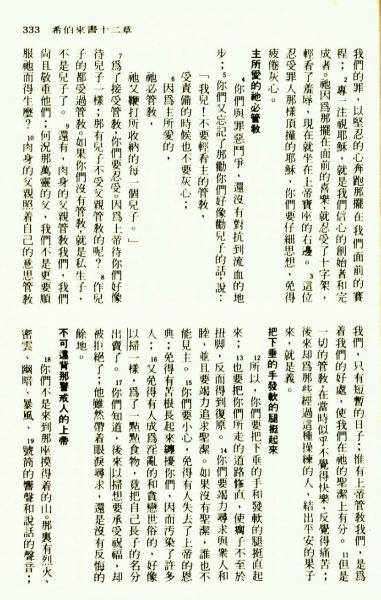 333 希伯來書十二章
我們的罪,以堅忍的心奔跑那擺在我們面前的賽
程;2專一注視耶穌,就是我們信心的創始者和完
成者。祂因爲那擺在面前的喜樂,就忍受了十字架,
輕看了羞辱,現在就坐在上帝寶座的右邊。3這位
忍受罪人那樣頂撞的耶穌,你們要仔細思想,免得
疲倦灰心。
主所愛的祂必管教
4你們與罪惡鬥爭,還沒有對抗到流血的地
步;5你們又忘記了那勸你們好像勸兒子的話,說:
「我兒!不要輕看主的管教,
受責備的時候也不要灰心;
6因爲主所愛的,
祂必管教,
祂又鞭打所收納的每一個兒子。」
7爲了接受管教,你們要忍受。因爲上帝待你們好像
待兒子一樣;那有兒子不受父親管教的呢?8作兒
子的都受過管教。如果你們沒有管教,就是私生子,
不是兒子了。9還有,肉身的父親管教我們,我們
尚且敬重他們;何況那萬靈的父,我們不是更要順
服祂而得生麼?10肉身的父親照着自己的意思管教
我們,只有短暫的日子;惟有上帝管教我們,是爲
着我們的好處,使我們在祂的聖潔上有分。11但是
一切的管教,在當時似乎不覺得快樂,反覺得痛苦;
後來却爲那些經過這種操練的人,結出平安的果子
來,就是義。
把下垂的手發軟的腿挺起來
12所以,你們要把下垂的手和發軟的腿挺直起
來;13也要把你們所走的道路修直,使瘸子不至於
扭脚,反而得到復原。14你們要竭力尋求與衆人和
睦,並且要竭力追求聖潔。如果沒有聖潔,誰也不
能見主。15你們要小心,免得有人失去了上帝的恩
典;免得有苦根長起來纏擾你們,因而汚染了許多
人;16又免得有人成爲淫亂的和貪戀世俗的,好像
以掃一樣,爲了一點點食物,竟把自己長子的名分
出賣了。17你們知道,後來以掃想要承受祝福,却
被拒絕了;他雖然帶着眼淚尋求,還是沒有反悔的
餘地。
不可違背那警戒人的上帝
18你們不是來到那座摸得着的山。那裏有烈火、
密雲、幽暗、暴風、19號筒的響聲和說話的聲音;